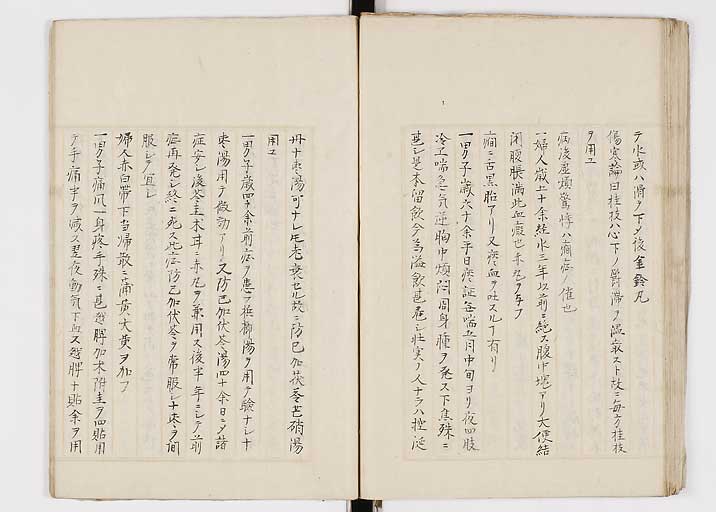 テ水或ハ滞ヲ下メ後金鈴丸
傷寒論曰桂枝ハ心下ノ欝滞ヲ温散スト故ニ毎方桂枝
ヲ用ユ
病後虚煩驚悸ハ癇症ノ催也
一婦人歳五十余経水三年以前ニ絶ス腹中塊アリ大便結
閉腹脹満此血瘕也
癇ニ舌黒胎アリ又瘀血ヲ吐スルコ有リ
一男子歳六十余平日痰証毎喘五月中旬ヨリ夜四肢
冷至喘急気逆胸中煩悶周身腫ヲ発ス下焦殊ニ
甚シ是本留飲今為溢飲甚危シ壮実ノ人ナラハ控涎
丹十棗湯可ナレ𪜈老衰セル故ニ防已加茯苓芒硝湯
用ユ
一男子歳四十余前症ヲ患フ檳榔湯ヲ用テ験ナシ十
棗湯用テ微動アリ又防已加茯苓湯四十余日ニメ諸
症安シ後苓圭朮甘ニ赤丸ヲ兼用ス後半年ニシテ前
症再発シ終ニ死ス此症防已加茯苓ヲ常服シ十棗ヲ間
服シテ宜シ
婦人赤白帯下当帰散ニ蒲黄大黄ヲ加フ
一男子痛風一身疼手殊ニ甚越脾加朮附圭ヲ四貼用
テ手痛半ヲ減ス翌夜動気下血ス越脾十貼余ヲ用